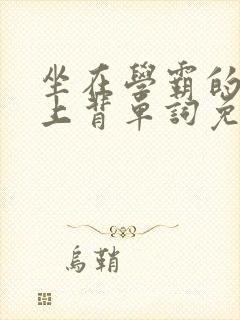 坐在學霸的
上背單詞免
烏鞘